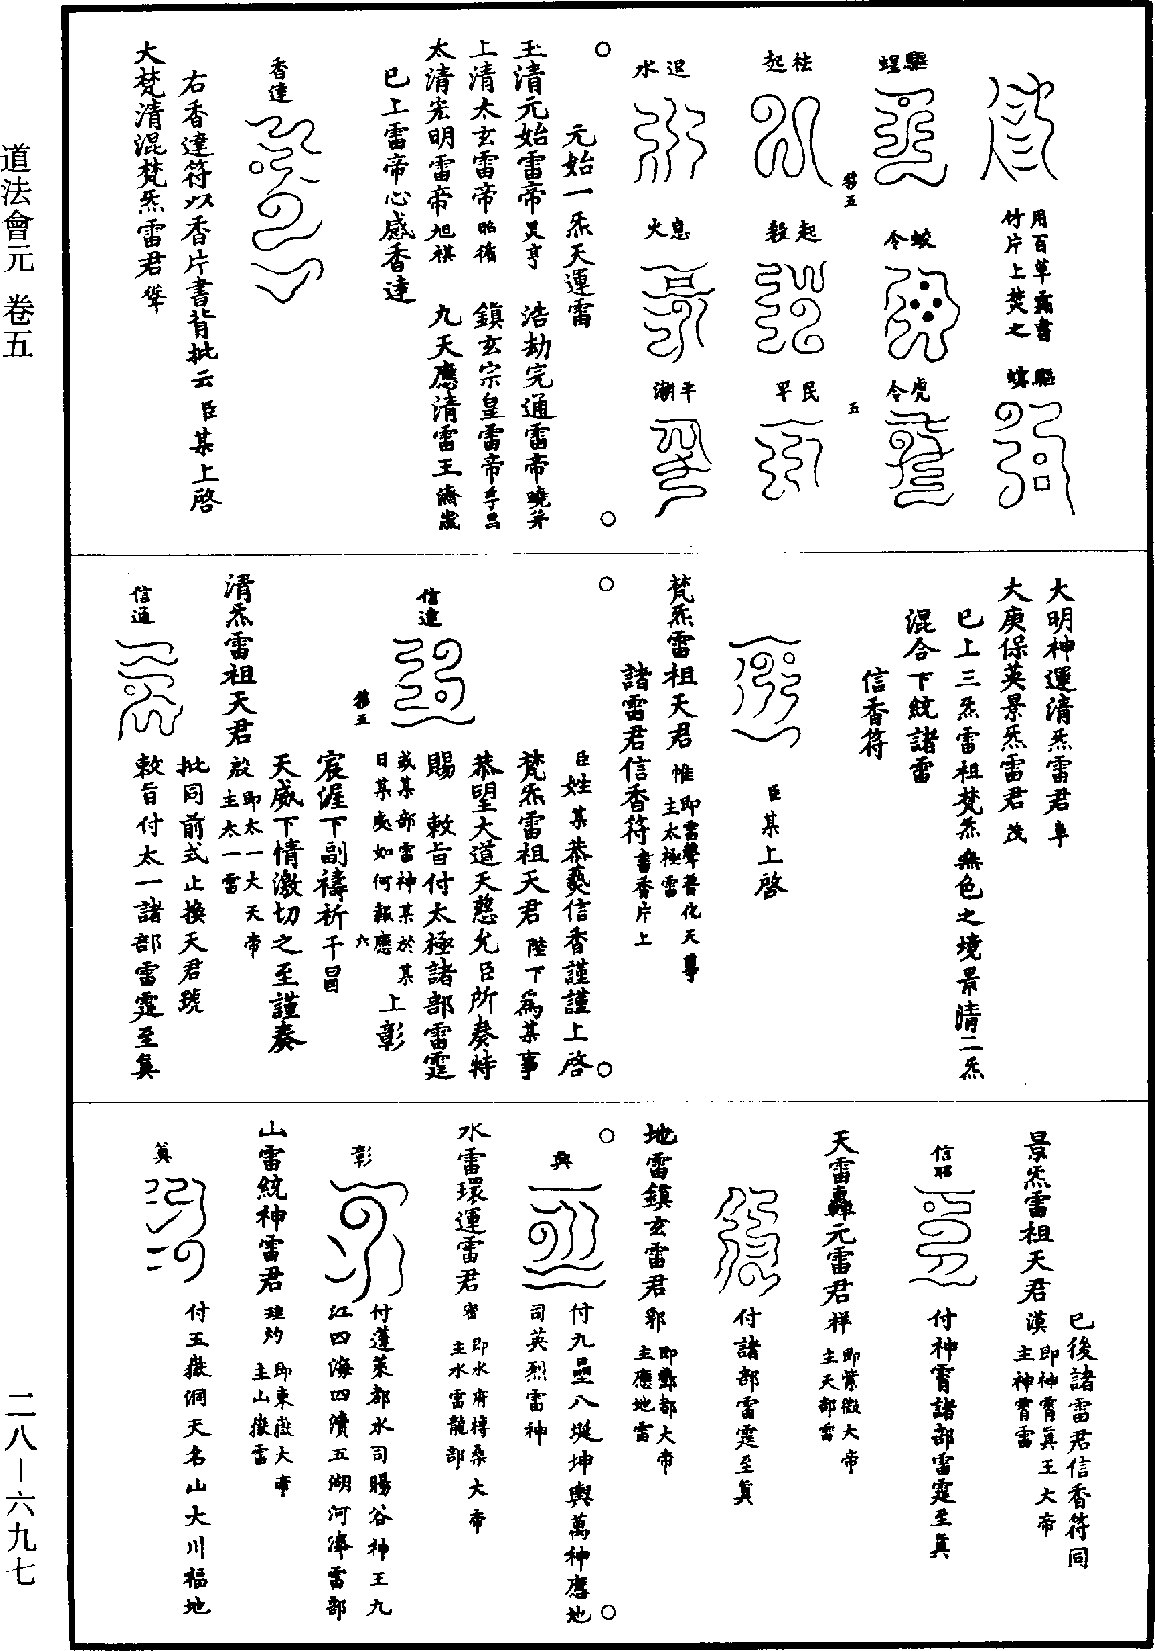 道法會元 卷五
二八—六九七
用百草霜書
竹片上焚之
驅蝗
驅蝗
蛟令
虎令
移五
五
祛起
起殺
民平
退水
息火
平潮
元始一炁天運雷
玉清元始雷帝
浩劫完通雷帝
上清太玄雷帝
鎮玄宗皇雷帝
太清宏明雷帝旭祺
九天應清雷王
已上雷帝心感香達
香達
右香達符以香片書背批云 臣某上啓
大梵清混梵炁雷君
大明神運清炁雷君
大庾保英景炁雷君 茂
已上三炁雷祖梵炁無色之境景晴二炁
混合下統諸雷
信香符
臣某上啓
梵炁雷祖天君 惟 即雷聲普化天尊
主太極雷
諸雷君信香符 書香片上
臣姓某恭爇信香謹謹上啓
梵炁雷祖天君 陛下爲某事
恭望大道天慈允臣所奏特
賜 敕旨付太極諸部雷霆
或某部雷神某於某
日某處如何報應
上彰
信達
移五
六
宸渥下副禱祈干冒
天威下情激切之至謹奏
清炁雷祖天君 啟 即太一大天帝
主太一雷
批同前式止換天君號
信通
敕旨付太一諸部雷霆至真
已後諸雷君信香符同
景炁雷祖天君 漠 即神霄真王大帝
主神霄雷
信昭
付神霄諸部雷霆至真
天雷轟元雷君 祥 即紫微大帝
主天部雷
付諸部雷霆至真
地雷鎮玄雷君 即酆都大帝
主應地雷
輿
付九壘八埏坤輿萬神應地
司英烈雷神
水雷環運雷君 即水府搏桑大帝
主水雷龍部
彰
付蓬萊都水司暘谷神王九
江四海四瀆五湖河源雷部
山雷統神雷君 即東嶽大帝
主山嶽雷
真
付五嶽洞天名山大川福地